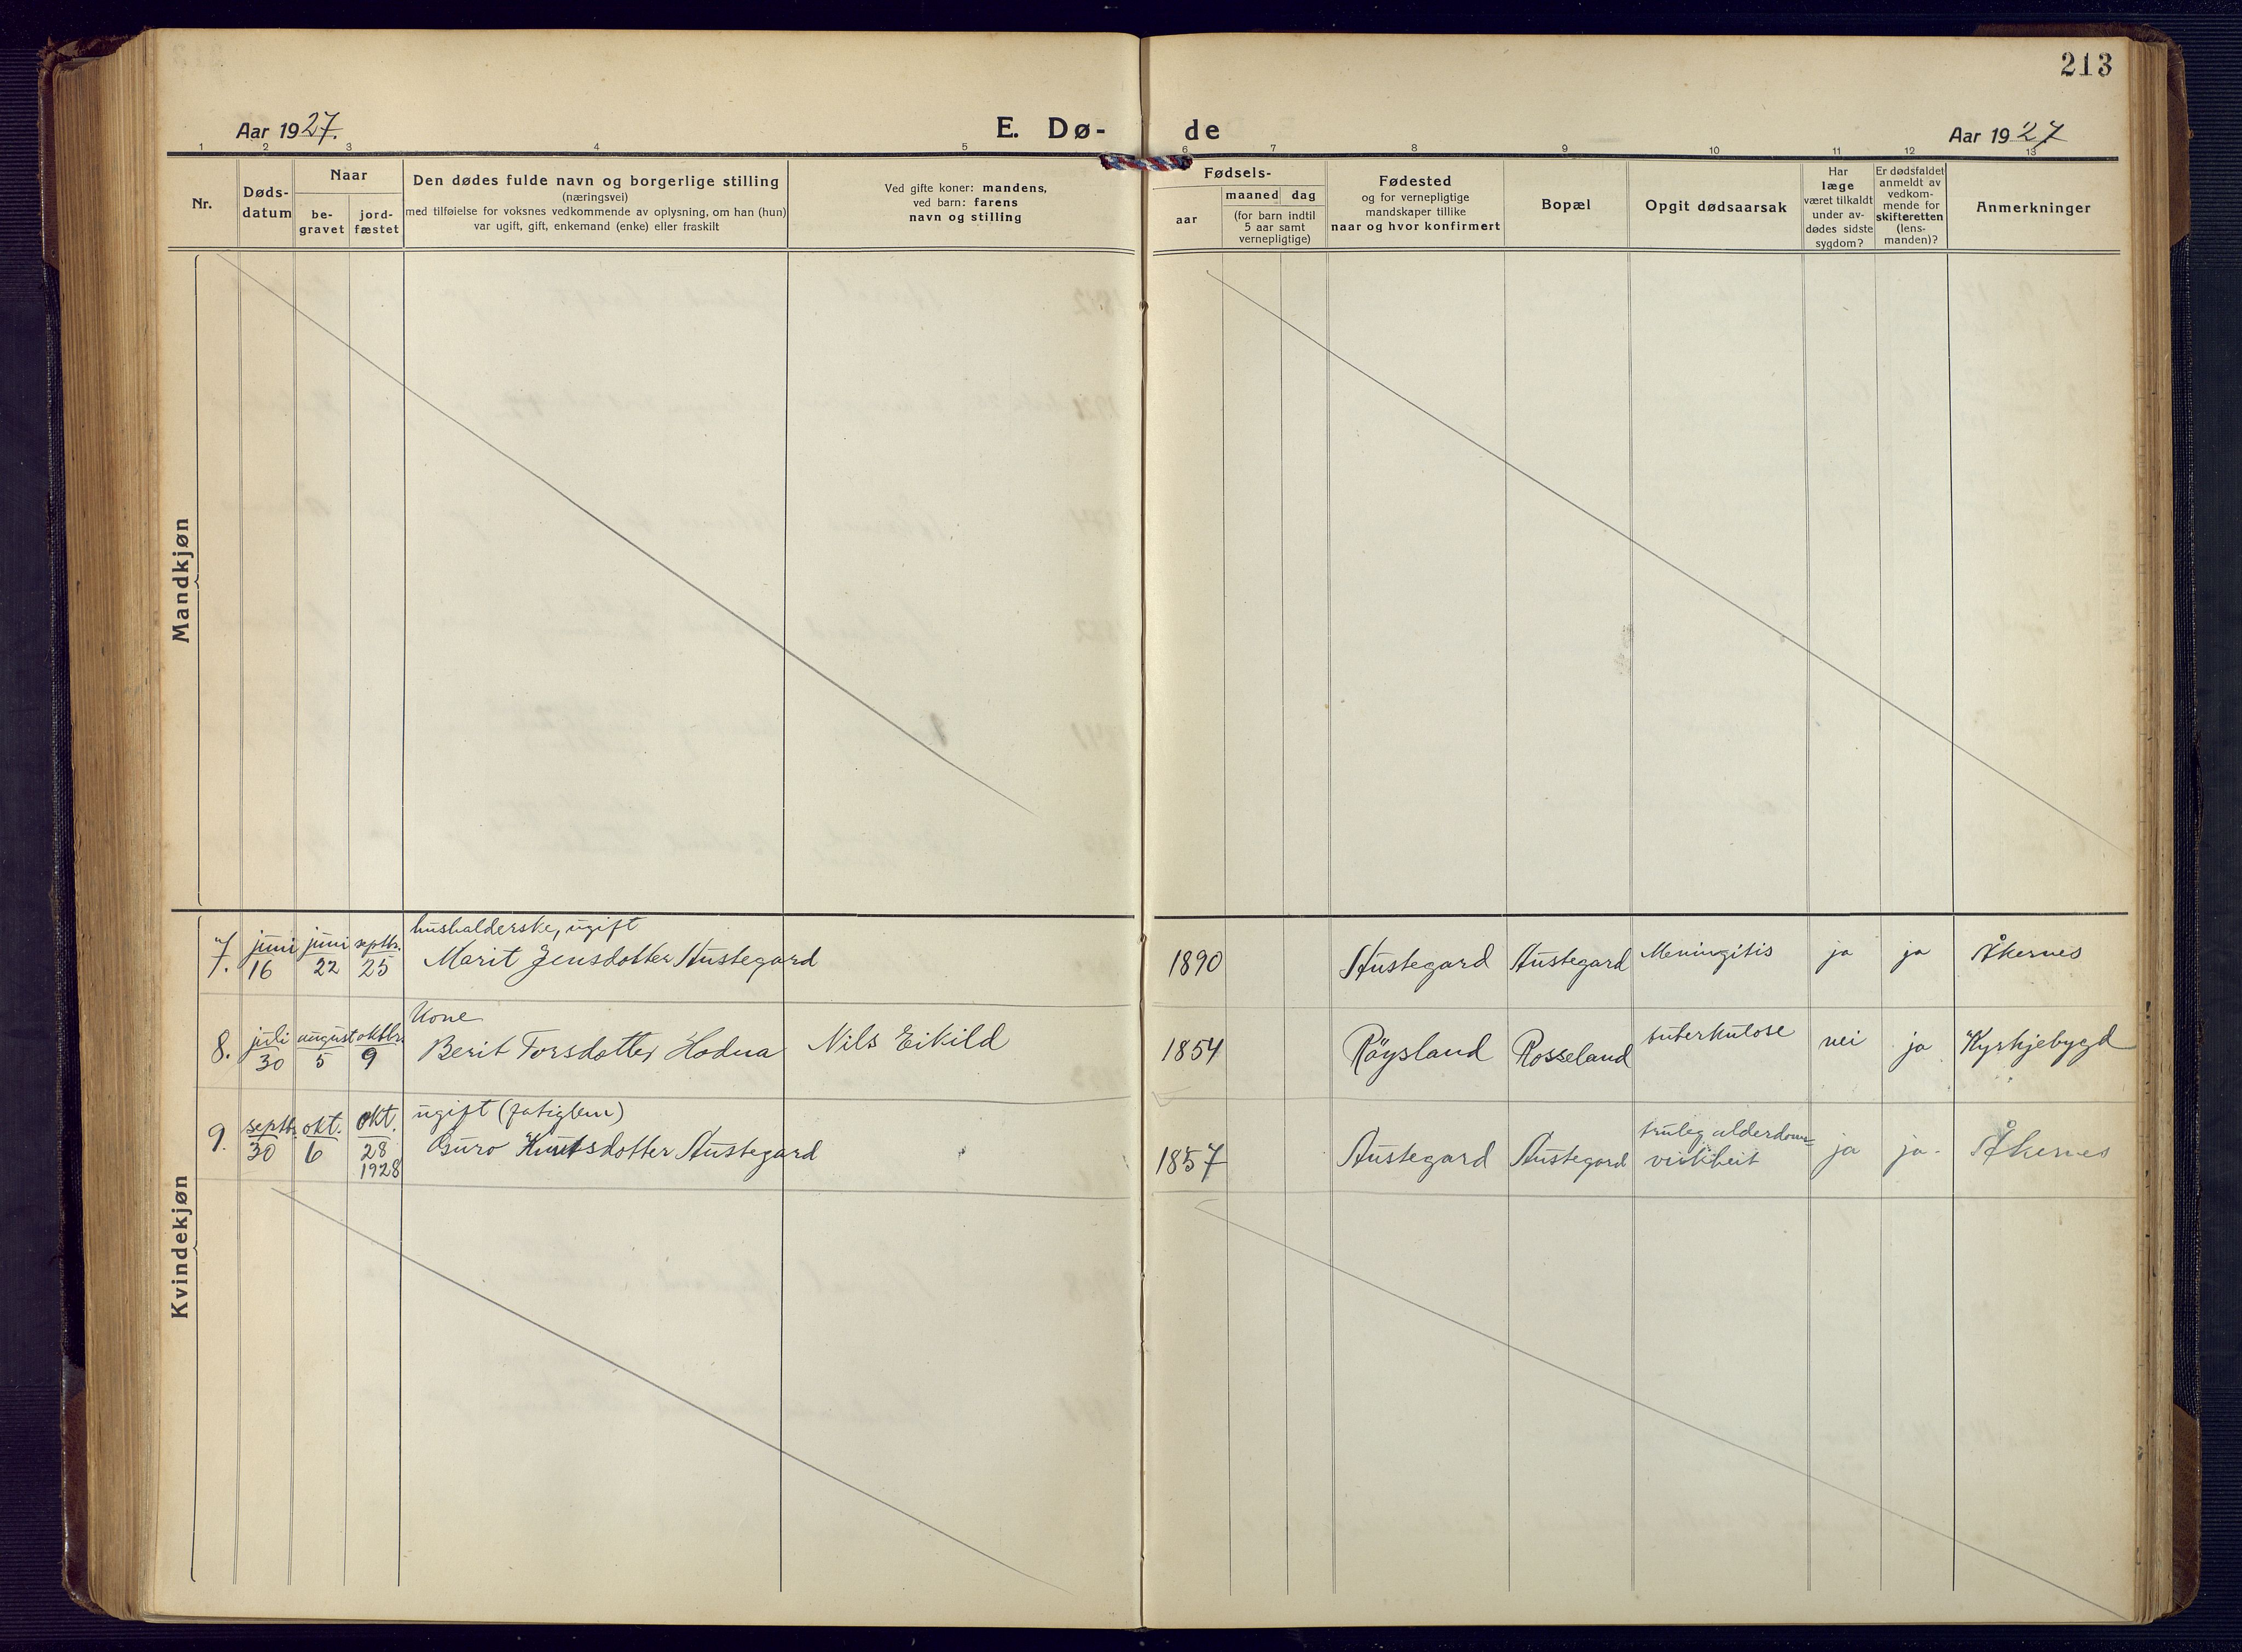 213
Aar 1927.
E. Dø-
de
Aar 1927
1 2 3 4 5 6 7 8 9 10 11 12 13
Nr.
Døds-
datum
Naar
be-
gravet
jord-
fæstet
Den dødes fulde navn og borgerlige stilling
(næringsvei)
med tilføielse for voksnes vedkommende av oplysning, om han (hun)
var ugift, gift, enkemand (enke) eller fraskilt
Ved gifte koner: mandens,
ved barn: farens
navn og stilling
Fødsels-
aar
maaned dag
(for barn indtil
5 aar samt
vernepligtige)
Fødested
og for vernepligtige
mandskaper tillike
naar og hvor konfirmert
Bopæl
Opgit dødsaarsak
Har
læge
været tilkaldt
under av-
dødes sidste
sygdom?
Er dødsfaldet
anmeldt av
vedkom-
mende for
skifteretten
(lens-
manden)?
Anmerkninger
Mandkjøn
Kvindekjøn
7.
juni
16
juni
22
septbr.
25
hushalderske, ugift
Marit Jensdotter Austegard
1890
Austegard
Austegard
Meningitis
ja
ja
Åkernes
8.
juli
30
august
5
oktbr.
9
Kone
Berit Torsdotter Hodna
Nils Eikild
1854
Röysland
Rosseland
tuberkulose
nei
ja
Kyrkjebygd
9.
septbr.
30
okt.
6
okt.
28
1928
ugift (fatiglem)
Guro Knutsdotter Austegard
1857
Austegard
Austegard
truleg alderdoms=
veikheit
ja
ja.
Åkernes